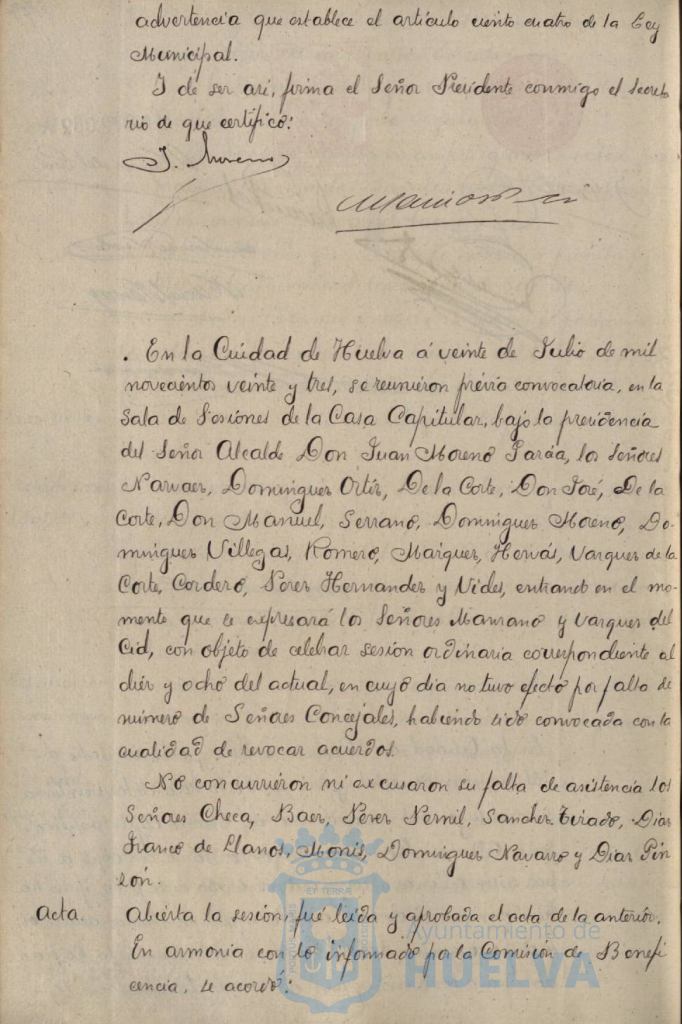 advertencia que establece el artículo ciento cuatro de la Ley
Municipal.
Y de ser así, firma el Señor Presidente conmigo el secreta
rio de que certifico:
J. Moreno
. En la Cuidad de Huelva á veinte de Julio de mil
novecientos veinte y tres, se reunieron prévia convocatoria, en la
Sala de Sesiones de la Casa Capitular, bajo la presidencia
del Señor Alcalde Don Juan Moreno Garcia, los Señores
Narvaez, Dominguez Ortiz, De la Corte, Don José, De la
Corte, Don Manuel, Serrano, Dominguez Moreno, Do-
minguez Villegas, Romero, Marquez, Hervás, Vazquez de la
Corte, Cordero, Perez Hernandez y Vides, entrando en el mo-
mento que se expresará los Señores Manzano y Vazquez del
Cid, con objeto de celebrar sesión ordinaria correspondiente al
diéz y ocho del actual, en cuyo dia no tuvo efecto por falta de
número de Señores Concejales, habiendo sido convocada con la
cualidad de revocar acuerdos.
No concurrieron ni excusaron su falta de asistencia los
Señores Checa, Baez, Perez Pernil, Sanchez Tirado, Diaz
Franco de Llanos, Monis, Dominguez Navarro y Diaz Pin
zón.
Acta. Abierta la sesión, fué leida y aprobada el acta de la anterior.
En armonia con lo informado por la Comisión de Benefi
cencia, se acordó:
Ayuntamiento de
HUELVA